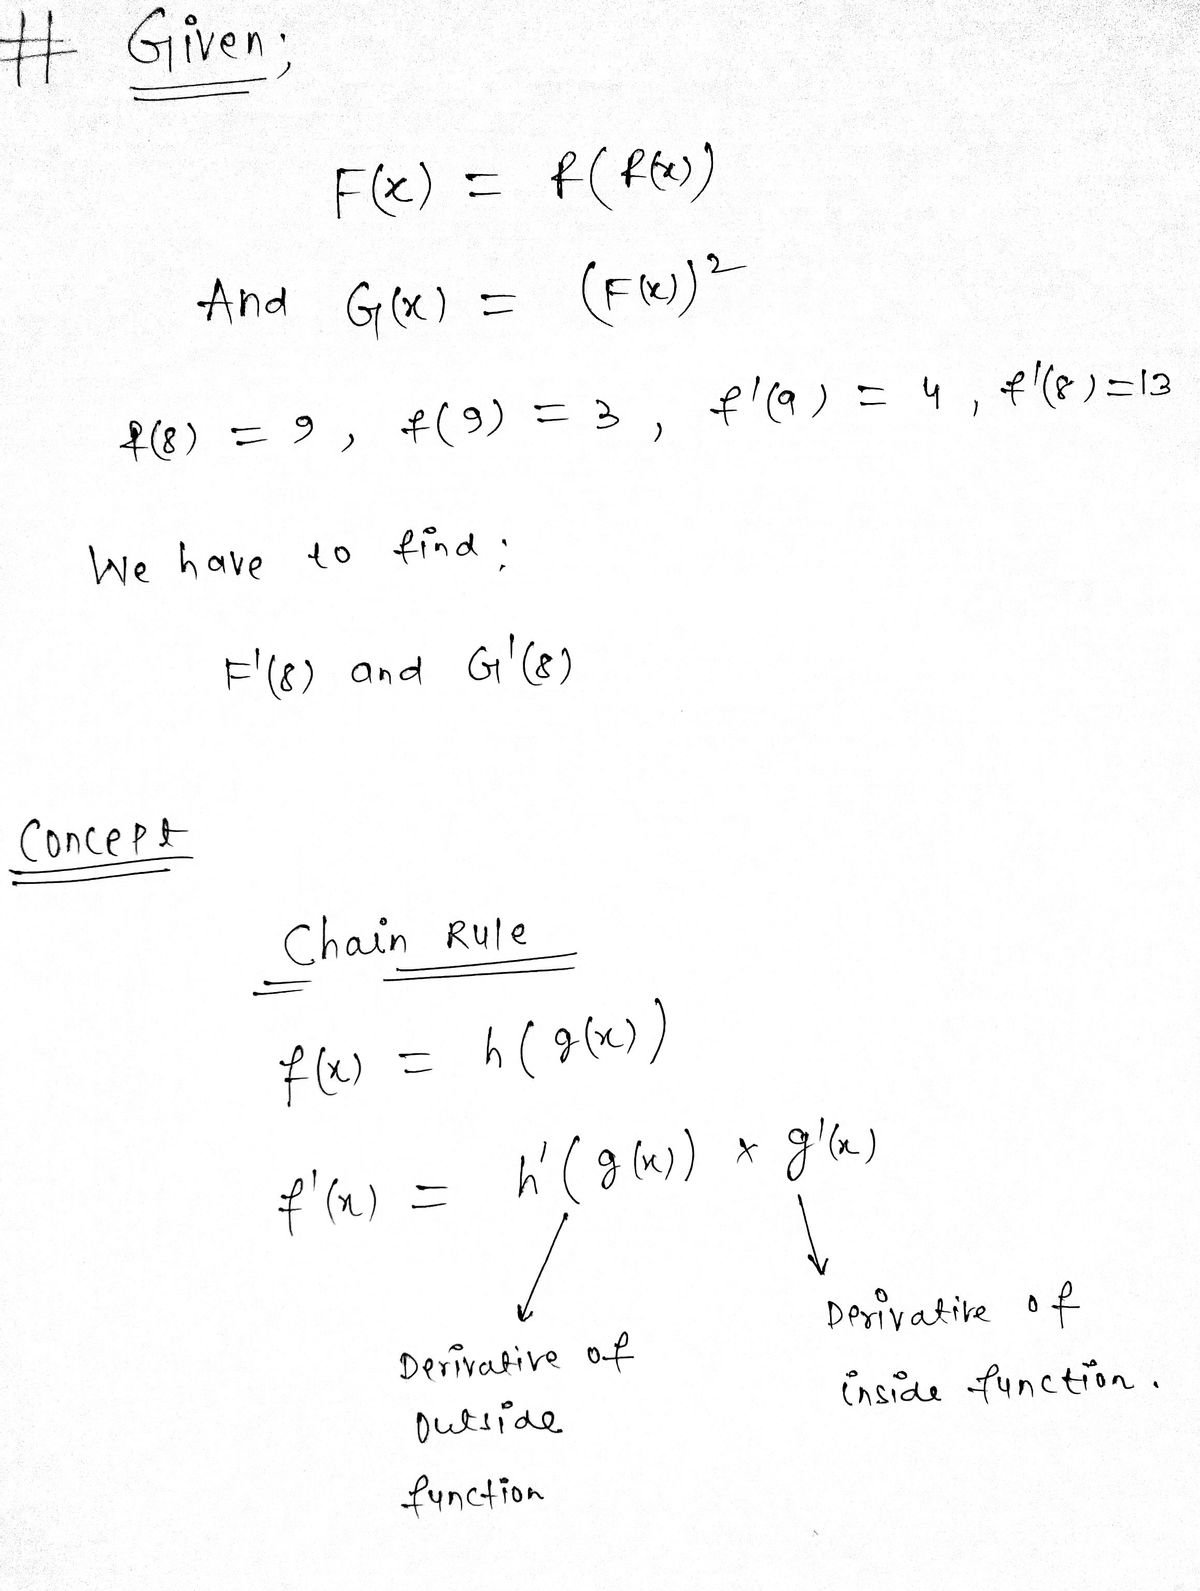 # Given;
F(x) = f(f(x))
And G(x) = (F(x))²
f(8) = 9, f(9) = 3, f'(9) = 4, f'(8)=13
We have to find;
F'(8) and G'(8)
Concept
Chain Rule
f(x) = h(g(x))
f'(x) = h'(g(x)) × g'(x)
Derivative of
outside
function
Derivative of
inside function.